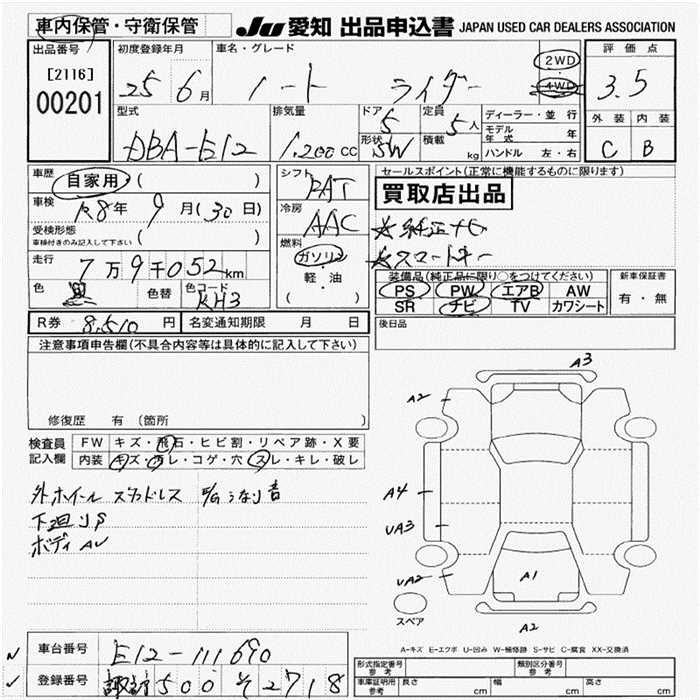 車内保管・守衛保管
JU 愛知 出品申込書 JAPAN USED CAR DEALERS ASSOCIATION
出品番号
[2116]
00201
初度登録年月
25 6月
車名・グレード
ノート ライダー
2WD
4WD
評価点
3.5
外装 内装
C B
型式
DBA-E12
排気量
1.200cc
ドア
5
形状
SW
定員
5人
積載
kg
ディーラー・並行
モデル年式 年
ハンドル 左・右
車歴
自家用 ( )
車検
R8年 9月(30日)
受検形態
車検付きのみ記入して下さい ( )
走行
7万9千052km
色
黒
色替
色コード
KH3
シフト
FAT
冷房
AAC
燃料
ガソリン
軽・油
( )
セールスポイント(正常に機能するものに限ります)
買取店出品
☆純正ナビ
☆スマートキー
装備品(純正品に限り○をつけてください)
PS PW エアB AW
SR ナビ TV カワシート
新車保証書
有・無
R券 8,510 円 名変通知期限 月 日
後日品
注意事項申告欄(不具合内容等は具体的に記入して下さい)
修復歴 有 (箇所 )
検査員
記入欄
FW キズ・飛石・ヒビ割・リペア跡・X要
内装 キズ・汚レ・コゲ・穴・スレ・キレ・破レ
外ホイール スタッドレス うなり音
下廻りP
ボディAU
A3
A2
A4
UA3
UA2
A1
A2
スペア
A-キズ E-エクボ U-凹み W-補修跡 S-サビ C-腐食 XX-交換済
車台番号 E12-111690
登録番号 諏訪 500 そ 2718
形式指定番号
参考
類別区分番号
参考
車庫証明用
参考
長さ cm 幅 cm 高さ cm